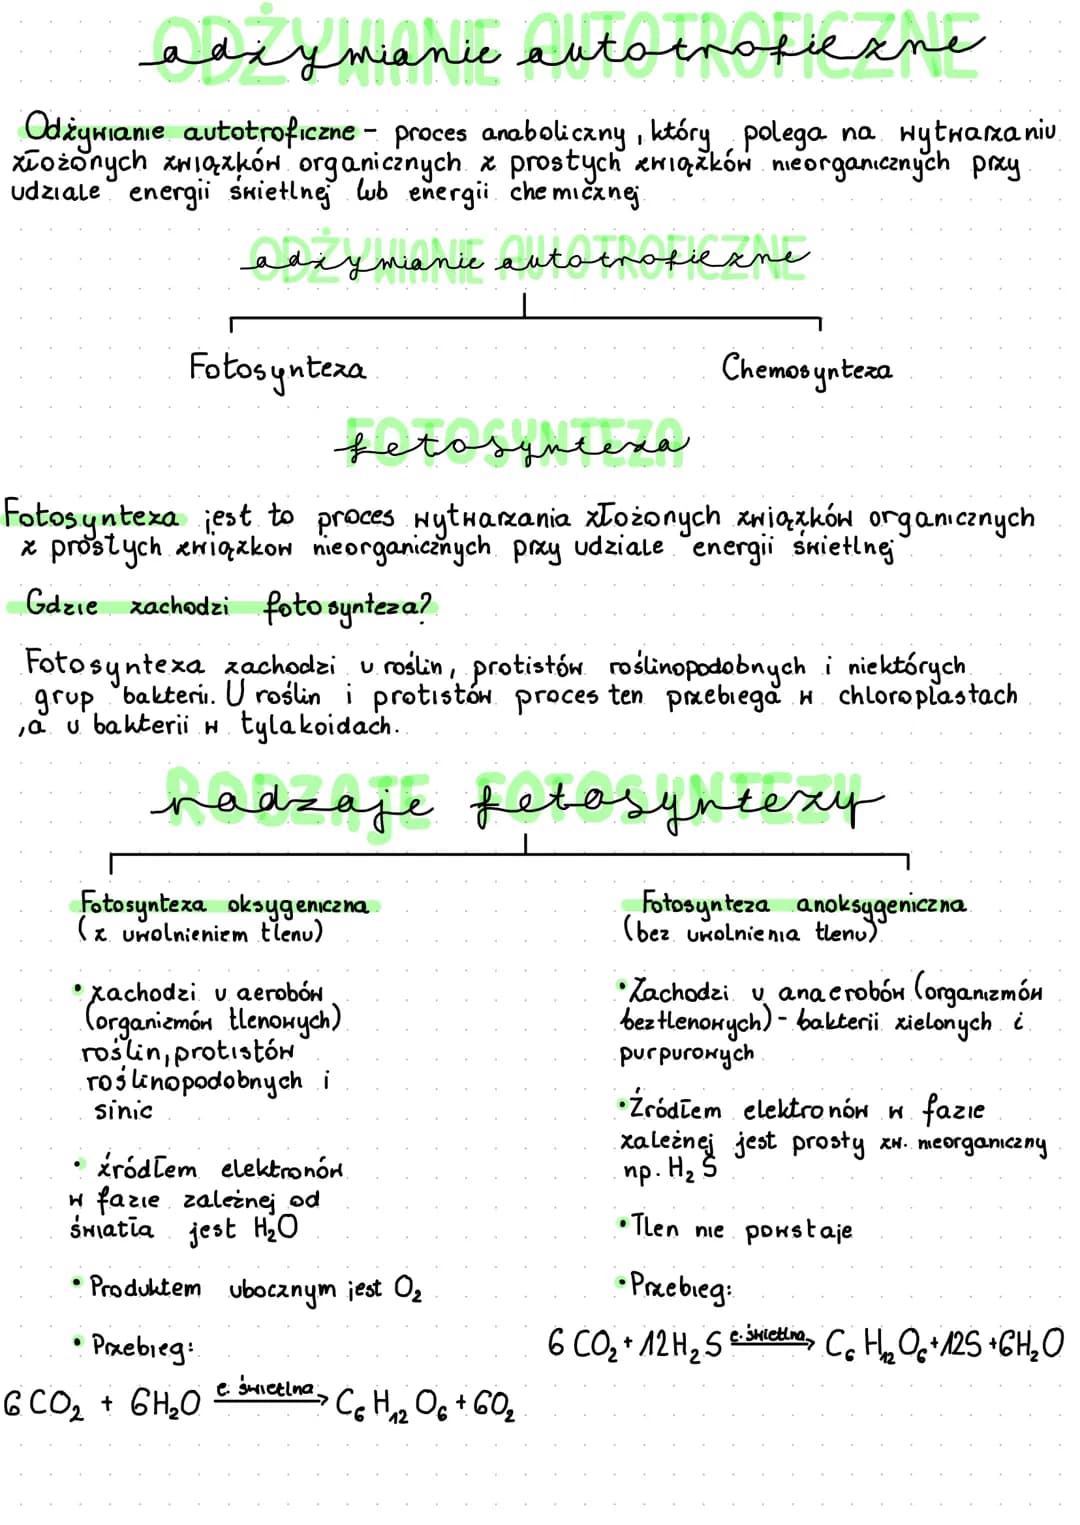 ODŻYWIANIE AUTOTROFICZNE
Odżywianie autotroficzne - proces anaboliczny, który polega na wytwarzaniu
złożonych związków organicznych z prostych związków nieorganicznych przy
udziale energii świetlnej lub energii chemicznej
ODŻYWIANIE AUTOTROFICZNE
Fotosynteza Chemosynteza
FOTOSYNTEZA
Fotosynteza jest to proces wytwarzania złożonych związków organicznych
z prostych związkow nieorganicznych przy udziale energii świetlnej
Gdzie zachodzi fotosynteza?
Fotosynteza zachodzi u roślin, protistów roślinopodobnych i niektórych
grup bakterii. U roślin i protistów proces ten przebiega w chloroplastach
,a u bakterii w tylakoidach.
RODZAJE FOTOSYNTEZY
Fotosynteza oksygeniczna
(z uwolnieniem tlenu)
• zachodzi u aerobów
(organizmów tlenowych)
roślin, protistów
roślinopodobnych i
sinic
• źródłem elektronów
w fazie zależnej od
światła jest H₂O
• Produktem ubocznym jest O₂
• Przebieg:
6 CO₂ + 6H₂O e. świetlna → C₆H₁₂O₆ + 6O₂
Fotosynteza anoksygeniczna
(bez uwolnienia tlenu)
• Zachodzi u anaerobów (organizmów
beztlenowych) - bakterii zielonych i
purpurowych
• Źródłem elektronów w fazie
zależnej jest prosty zw. nieorganiczny
np. H₂S
• Tlen nie powstaje
• Przebieg:
6 CO₂ + 12H₂S e. świetlna → C₆H₁₂O₆ + 12S + 6H₂O